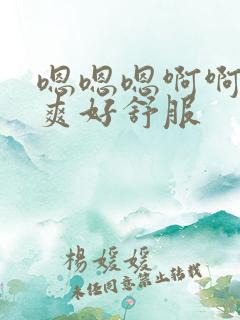 嗯嗯嗯啊啊
爽好舒服
楊媛媛
未经同意禁止转载